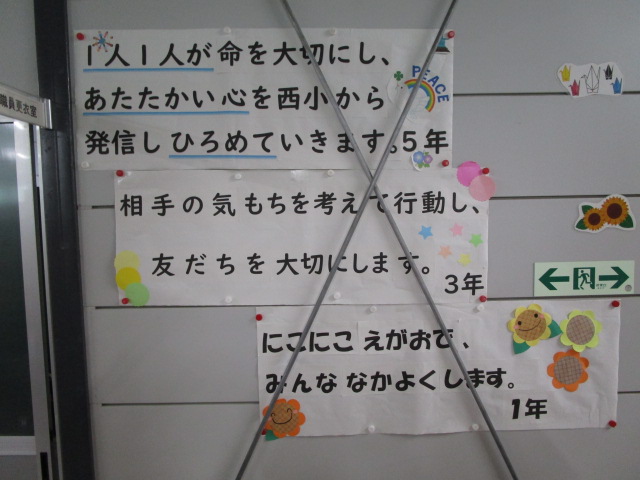 職員更衣室
1人1人が命を大切にし、
あたたかい心を西小から
発信しひろめていきます。5年
PEACE
相手の気もちを考えて行動し、
友だちを大切にします。
3年
にこにこ えがおで、
みんな なかよくします。
1年